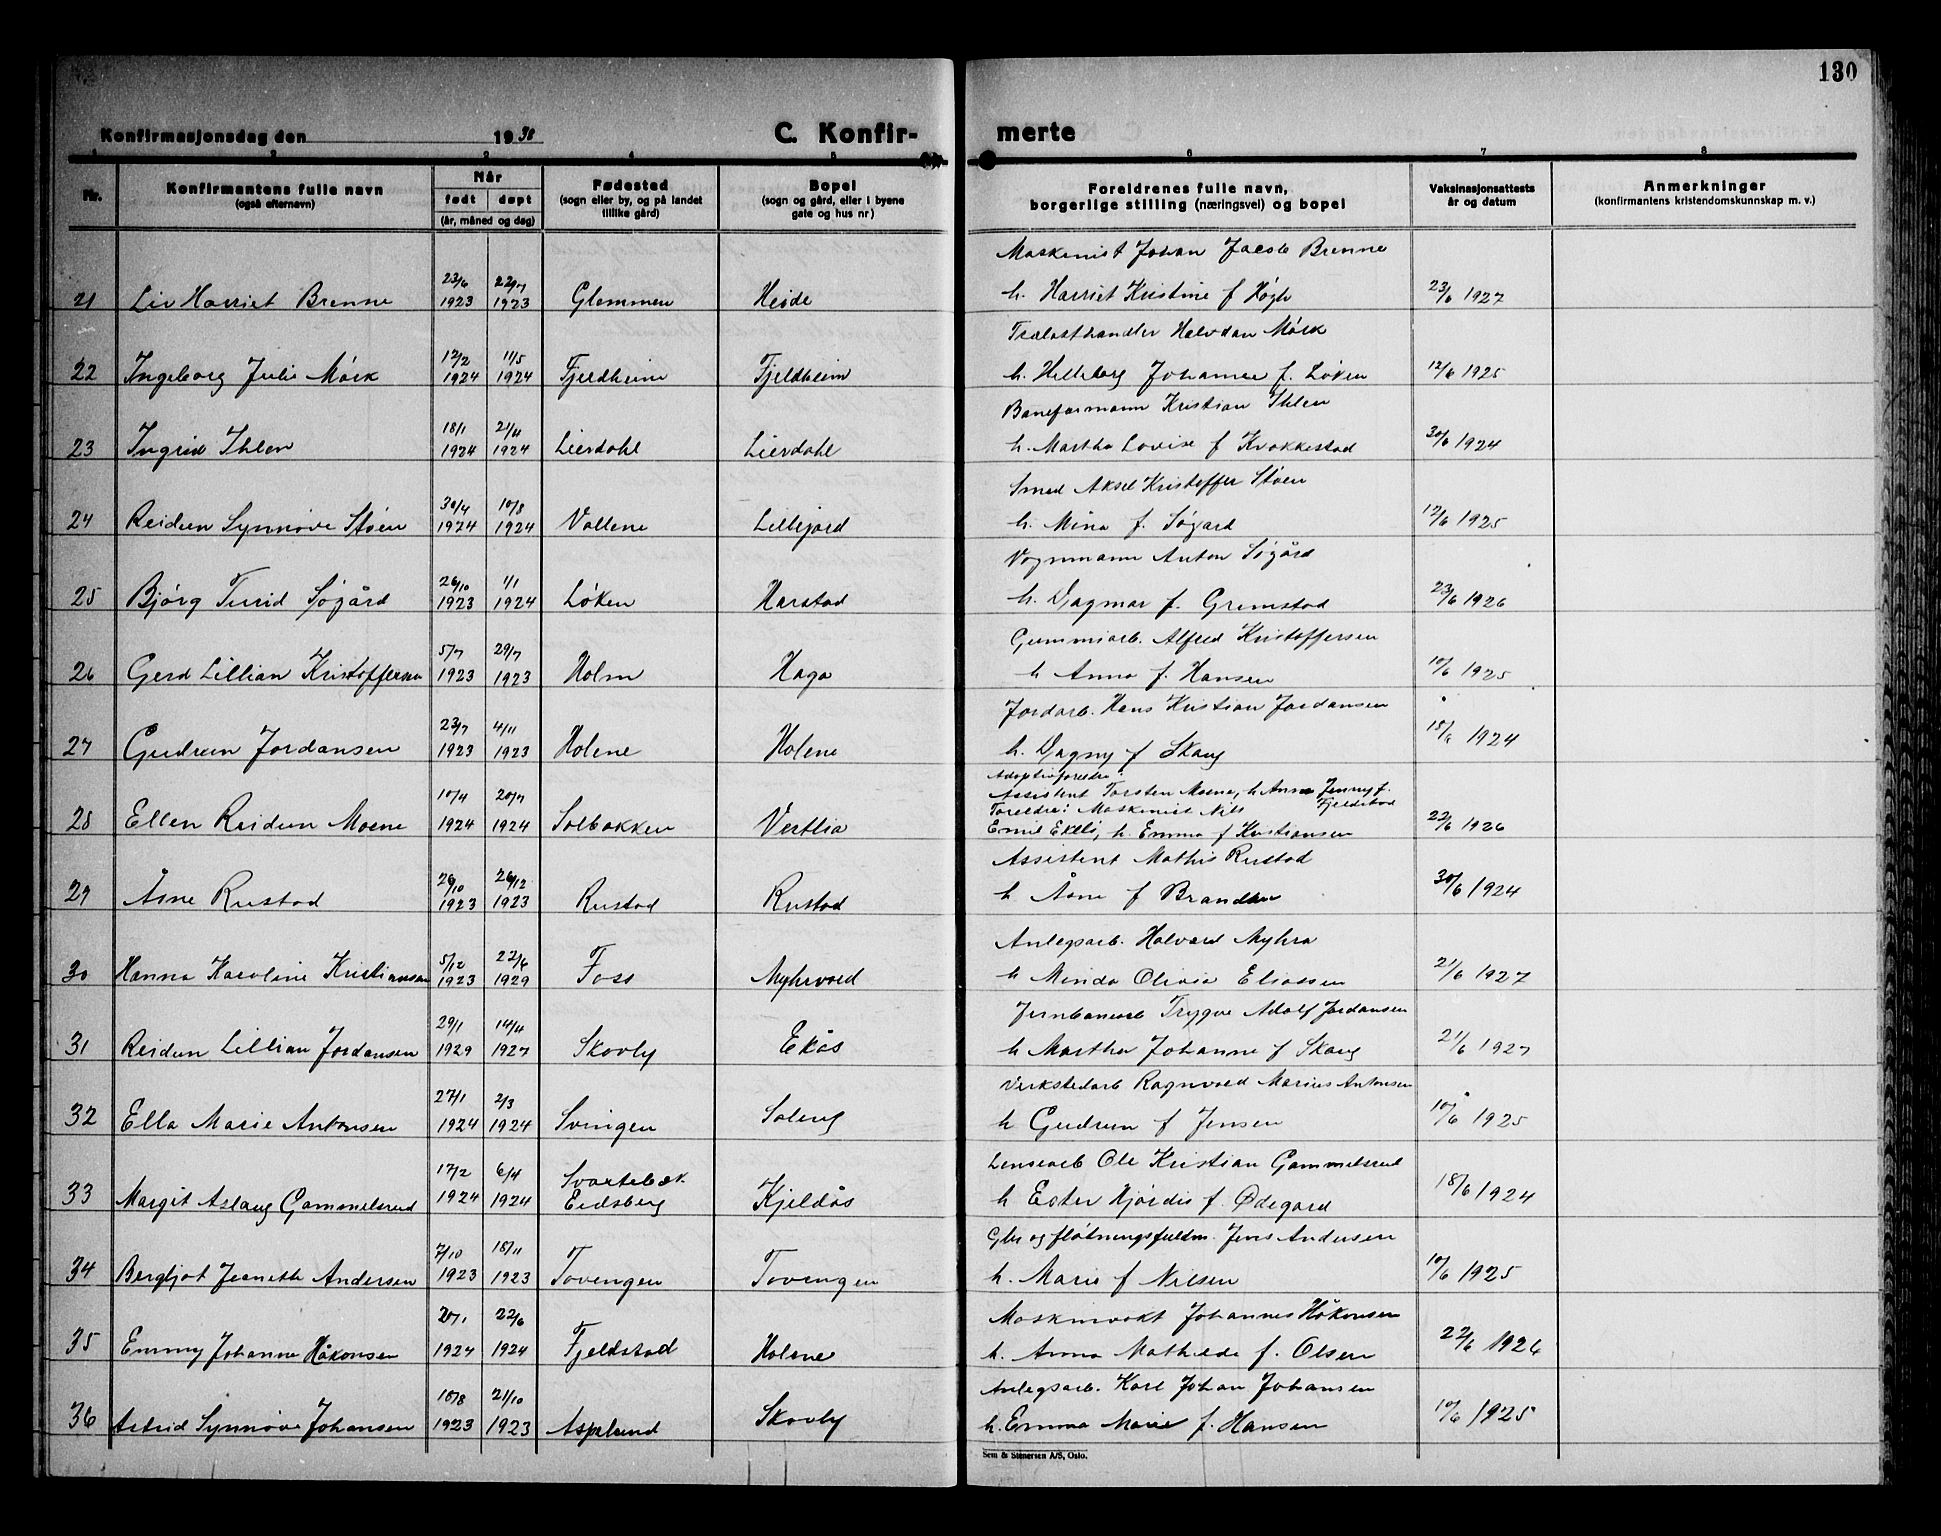 130
Konfirmasjonsdag den 1938 C. Konfir- merte
1 2 3 4 5 6 7 8
Nr. Konfirmantens fulle navn (også efternavn) Når født døpt (år, måned og dag) Fødested (sogn eller by, og på landet tillike gård) Bopel (sogn og gård, eller i byene gate og hus nr) Foreldrenes fulle navn, borgerlige stilling (næringsvei) og bopel Vaksinasjonsattests år og datum Anmerkninger (konfirmantens kristendomskunnskap m. v.)
Maskinist Johan Jacob Brenne
21 Liv Harriet Brenne 23/6 1923 22/7 1923 Glemmen Heide h. Harriet Kristine f Høgh 23/6 1927
Trelasthandler Halvdan Mørk
22 Ingeborg Julie Mørk 12/2 1924 11/5 1924 Fjeldheim Fjeldheim h. Hilleborg Johanne f. Løken 12/6 1925
Baneformann Kristian Ihlen
23 Ingrid Ihlen 18/1 1924 21/4 1924 Lierdahl Lierdahl h. Martha Lovise f Kvakkestad 30/6 1924
Smed Aksel Kristoffer Støen
24 Reidun Synnøve Støen 30/4 1924 10/8 1924 Vollene Lillejord h. Mina f. Søgard 12/6 1925
Vognmann Anton Søgård
25 Bjørg Turid Søgård 26/10 1923 1/1 1924 Løken Harstad h. Dagmar f. Gremstad 23/6 1926
Gummiarb. Alfred Kristoffersen
26 Gerd Lillian Kristoffersen 5/7 1923 29/7 1923 Holm Haga h Anna f. Hansen 10/6 1925
Jordarb. Hans Kristian Jordansen
27 Gudrun Jordansen 23/7 1923 4/11 1923 Holene Holene h. Dagny f Skaug 18/6 1924
Adoptivforeldre:
Assistent Torsten Moene, h Anna Jenny f. Fjeldstad
Foreldre: Maskinist Nils
28 Ellen Reidun Moene 10/4 1924 20/7 1924 Solbakken Vestlia Emil h. Emma f Kristiansen 22/6 1926
Assistent Mathis Rustad
29 Åsne Rustad 26/10 1923 26/12 1923 Rustad Rustad h Åsne f 30/6 1924
Anlegsarb. Halvard Myhra
30 Hanna Karoline Kristiansen 5/12 1923 22/6 1929 Foss Myhrvold h Minda Olivia Eliassen 21/6 1927
Jernbanearb Trygve Adolf Jordansen
31 Reidun Lillian Jordansen 29/1 1929 14/4 1927 Skovly Ekås h Martha Johanne f Skaug 21/6 1927
Verkstedarb Ragnvald Marius Antonsen
32 Ella Marie Antonsen 27/1 1924 2/3 1924 Svingen Soleng h Gudrun f Jensen 10/6 1925
Lensearb Ole Kristian Gammelsrud
33 Margit Aslaug Gammelsrud 17/2 1924 6/4 1924 Svartebæk Eidsberg Kjeldås h Ester Hjørdis f. Ødegard 18/6 1924
Gbr og fløtningsfuldm. Jens Andersen
34 Bergljot Jeanette Andersen 7/10 1923 18/11 1923 Tovengen Tovengen h. Marie f Nilsen 10/6 1925
Maskinvakt Johannes Håkonsen
35 Emmy Johanne Håkonsen 20/1 1924 22/6 1924 Fjeldstad Holene h. Anna Mathilde f. Olsen 22/6 1926
Anlegsarb. Karl Johan Johansen
36 Astrid Synnøve Johansen 18/8 1923 21/10 1923 Asplund Skovly h. Emma Marie f. Hansen 10/6 1925
Sem & Stenersen A/S, Oslo.